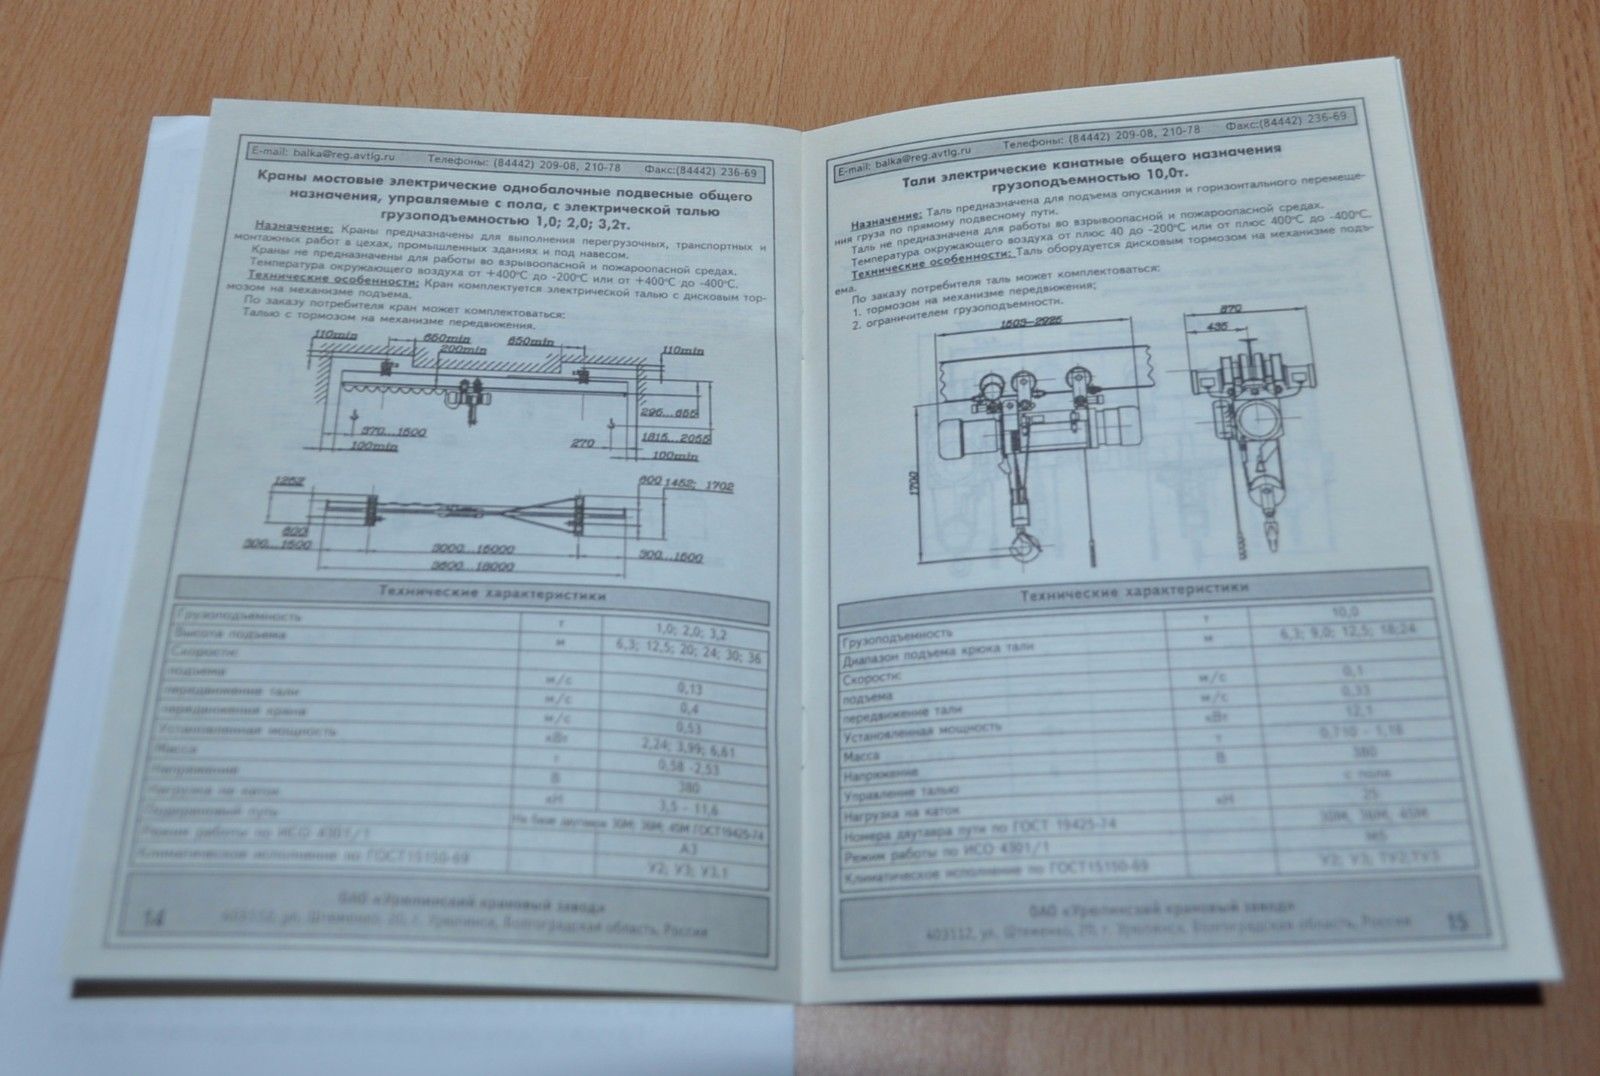 E-mail: balka@reg.avtlg.ru Телефоны: (84442) 209-08, 210-78 Факс:(84442) 236-69
Краны мостовые электрические однобалочные подвесные общего
назначения, управляемые с пола, с электрической талью
грузоподъемностью 1,0; 2,0; 3,2т.
Назначение: Краны предназначены для выполнения перегрузочных, транспортных и
монтажных работ в цехах, промышленных зданиях и под навесом.
Краны не предназначены для работы во взрывоопасной и пожароопасной средах.
Температура окружающего воздуха от +400ºС до -200ºС или от +400ºС до -400ºС.
Технические особенности: Кран комплектуется электрической талью с дисковым тор-
мозом на механизме подъема.
По заказу потребителя кран может комплектоваться:
Талью с тормозом на механизме передвижения.
110min 650min 650min 110min
200min
295...655
370...1500 270 1815...2055
100min 100min
1252 600 1452; 1702
600
300...1500 3000...15000 300...1500
3600...18000
Технические характеристики
Грузоподъемность т 1,0; 2,0; 3,2
Высота подъема м 6,3; 12,5; 20; 24; 30; 36
Скорости:
подъема м/с 0,13
передвижения тали м/с 0,4
передвижения крана м/с 0,53
Установленная мощность кВт 2,24; 3,99; 6,61
Масса т 0,58 -2,53
Напряжение В 380
Нагрузка на каток кН 3,5 - 11,6
Подкрановый путь На базе двутавров 30М; 36М; 45М ГОСТ19425-74
Режим работы по ИСО 4301/1 А3
Климатическое исполнение по ГОСТ15150-69 У2; У3; У3.1
ОАО «Урюпинский крановый завод»
14 403112, ул. Штеменко, 20, г. Урюпинск, Волгоградская область, Россия
E-mail: balka@reg.avtlg.ru Телефоны: (84442) 209-08, 210-78 Факс:(84442) 236-69
Тали электрические канатные общего назначения
грузоподъемностью 10,0т.
Назначение: Таль предназначена для подъема опускания и горизонтального перемеще-
ния груза по прямому подвесному пути.
Таль не предназначена для работы во взрывоопасной и пожароопасной средах.
Температура окружающего воздуха от плюс 40 до -200ºС или от плюс 400ºС до -400ºС.
Технические особенности: Таль оборудуется дисковым тормозом на механизме подъ-
ема.
По заказу потребителя таль может комплектоваться:
1. тормозом на механизме передвижения;
2. ограничителем грузоподъемности.
1503-2925 870
435
1700
Технические характеристики
Грузоподъемность т 10,0
Диапазон подъема крюка тали м 6,3; 9,0; 12,5; 18;24
Скорости:
подъема м/с 0,1
передвижение тали м/с 0,33
Установленная мощность кВт 12,1
Масса т 0,710 - 1,16
Напряжение В 380
Управление талью с пола
Нагрузка на каток кН 25
Номера двутавра пути по ГОСТ 19425-74 30М, 36М, 45М
Режим работы по ИСО 4301/1 М5
Климатическое исполнение по ГОСТ15150-69 У2; У3; ТУ2;ТУ3
ОАО «Урюпинский крановый завод»
403112, ул. Штеменко, 20, г. Урюпинск, Волгоградская область, Россия 15